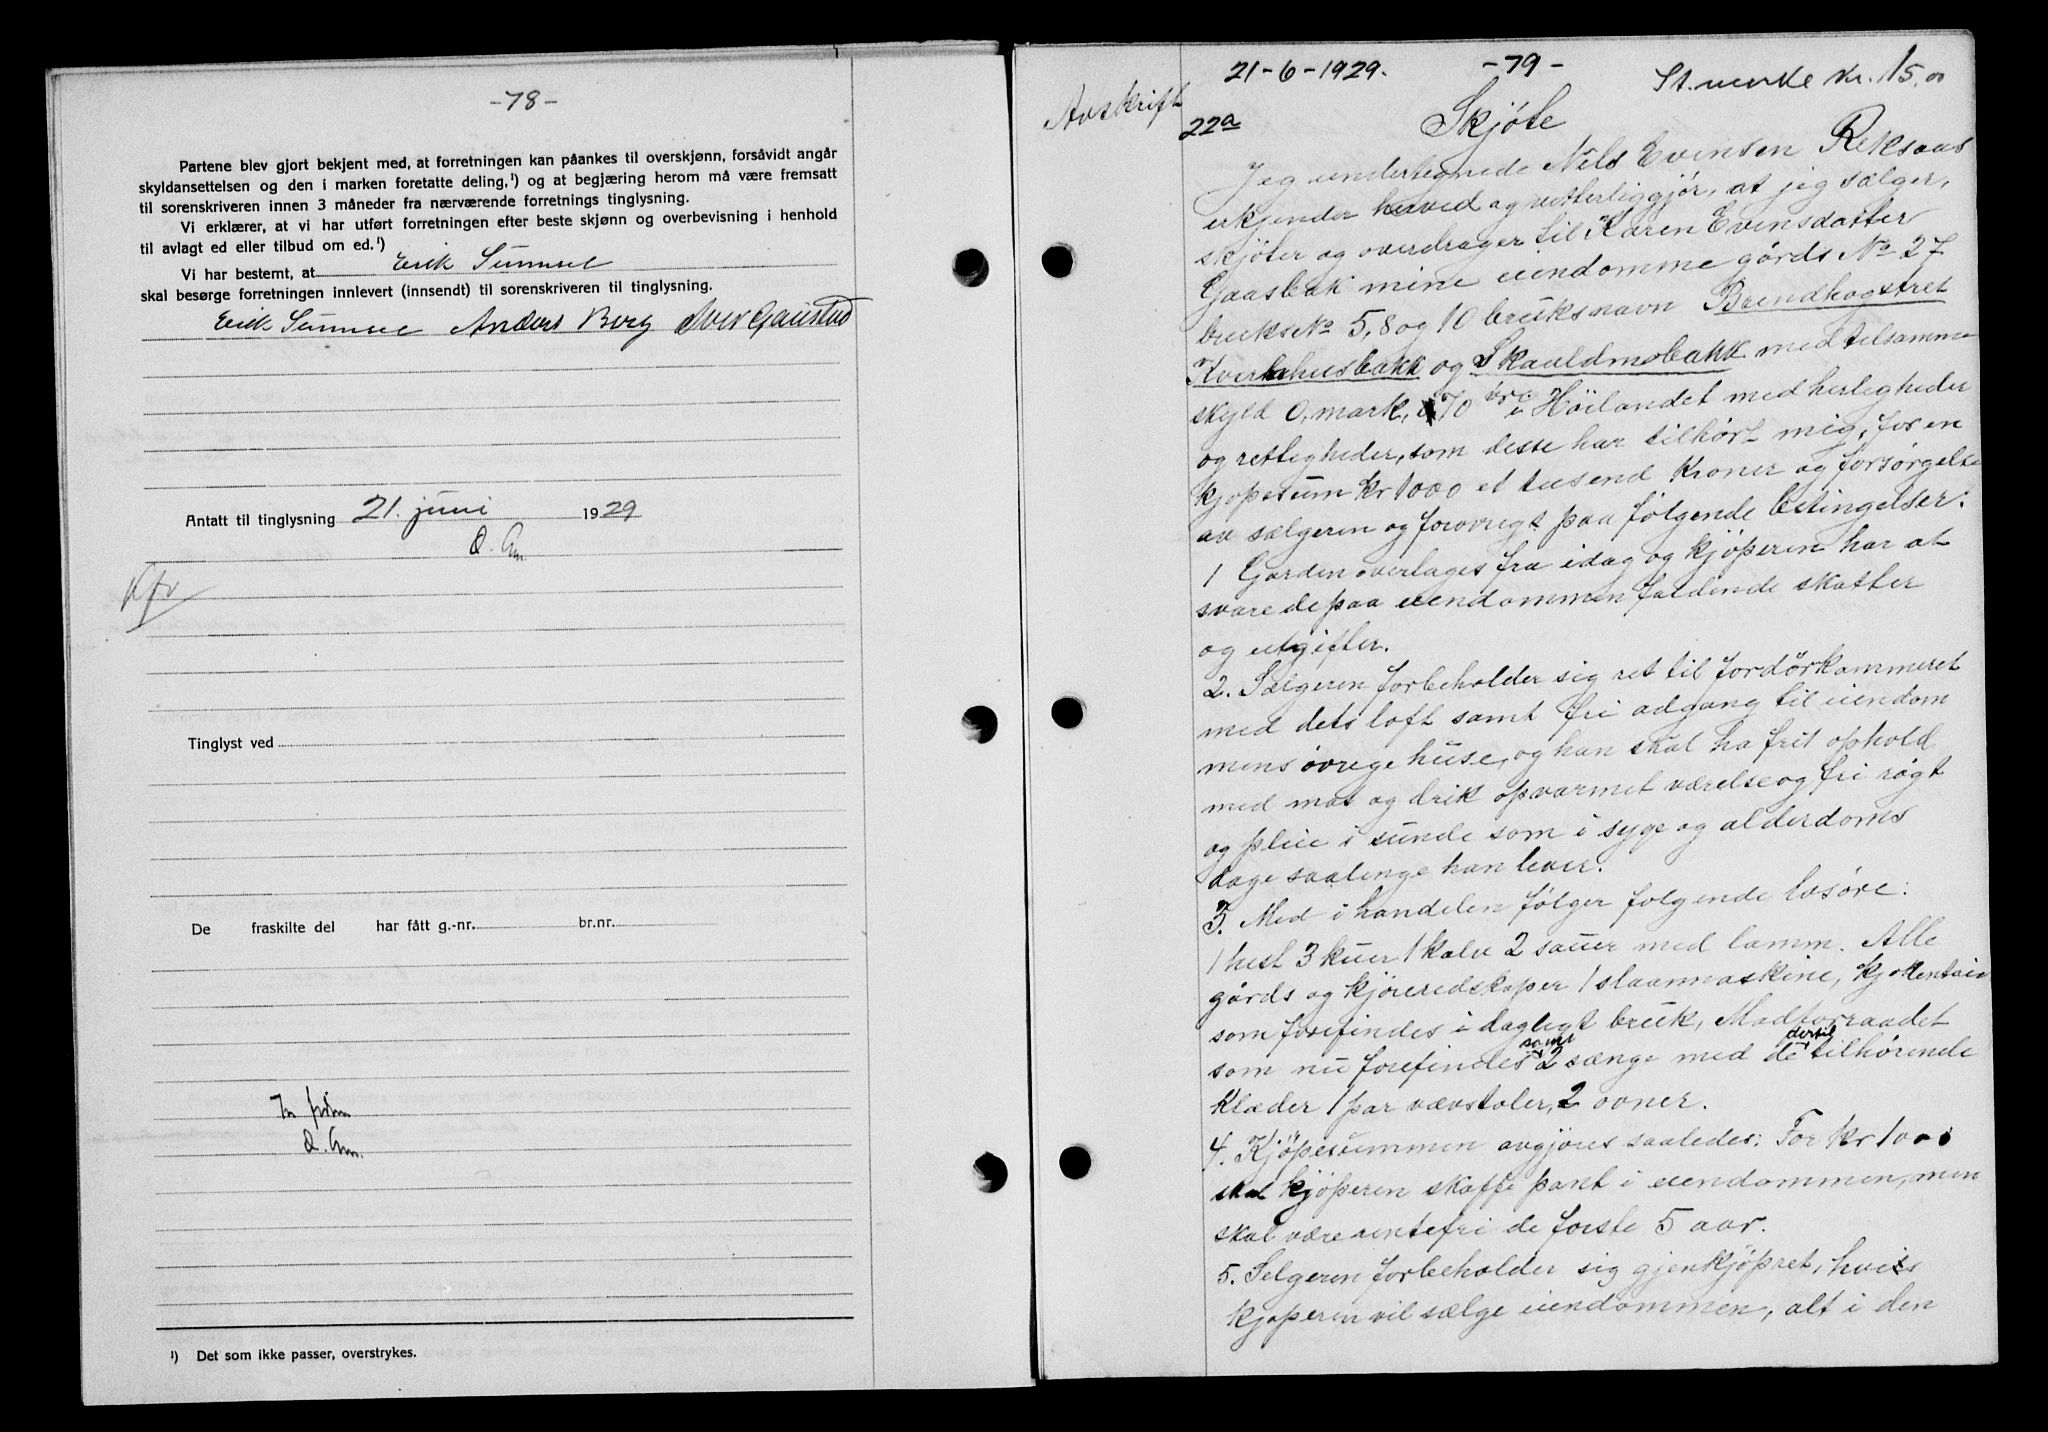 -78-
Partene blev gjort bekjent med, at forretningen kan påankes til overskjønn, forsåvidt angår
skyldansettelsen og den i marken foretatte deling,¹) og at begjæring herom må være fremsatt
til sorenskriveren innen 3 måneder fra nærværende forretnings tinglysning.
Vi erklærer, at vi har utført forretningen efter beste skjønn og overbevisning i henhold
til avlagt ed eller tilbud om ed.¹)
Vi har bestemt, at Erik
skal besørge forretningen innlevert (innsendt) til sorenskriveren til tinglysning.
Erik Anders Berg Iver Gaustad
Antatt til tinglysning 21. juni 1929
Tinglyst ved
De fraskilte del har fått g.-nr. br.nr.
¹) Det som ikke passer, overstrykes.
21-6-1929. -79- St. merke kr. 15.00
Avskrift
22a Skjøte
Jeg undertegnede Nils Evensen Reksaas
erkjender herved og vitterliggjør, at jeg sælger,
skjøter og overdrager til Karen Evensdatter
Gaasbak mine eiendomme gårds No 27
bruksNo 5, 8 og 10 bruksnavn Brendhagstret
Kvernhusbakk og Skauldmobakk med tilsammen
skyld 0, mark, 70 øre i Høilandet med herligheder
og rettigheder, som desse har tilhørt mig, for en
kjøpesum kr 1000 et tusend Kroner og forsørgelse
av sælgeren og forøvrigt paa følgende betingelser:
1 Gården overtages fra idag og kjøperen har at
svare de paa eiendommen faldende skatter
og utgifter.
2. Sælgeren forbeholder sig ret til fordørkammeret
med dets loft samt fri adgang til eiendom
mens øvrige huse, og han skal ha frit ophold
med mat og drik opvarmet værelse og fri røgt
og pleie i sunde som i syge og alderdoms
dage saalenge han lever.
3. Med i handelen følger følgende løsøre:
1 hest 3 kuer 1 kalv 2 sauer med lamm. Alle
gårds og kjøreredskaper 1 slaamaskine, kjøkentøi
som forefindes i dagligt bruk, Madforraadet
som nu forefindes samt 2 sænge med de dertil tilhørende
klæder 1 par vævstoler, 2 ovner.
4. Kjøpesummen avgjøres saaledes: For kr 1000
skal kjøperen skaffe pant i eiendommen, men
skal være rentefri de første 5 aar.
5. Selgeren forbeholder sig gjenkjøpret, hvis
kjøperen vil sælge eiendommen, alt i den